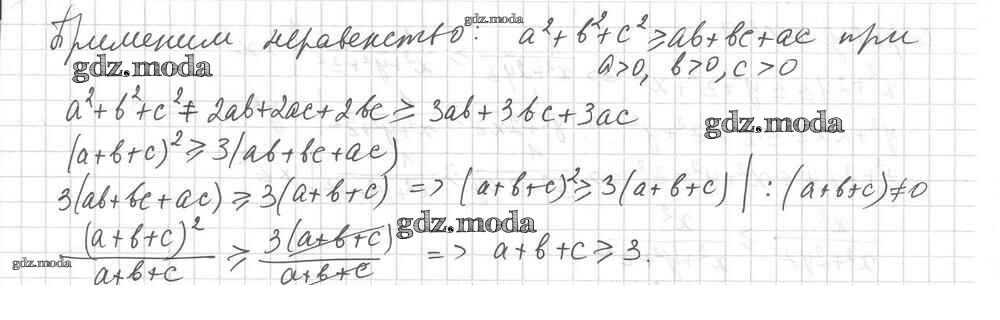 Применим неравенство: a² + b² + c² ≥ ab + bc + ac при
gdz.moda
a>0, b>0, c>0
gdz.moda
a² + b² + c² + 2ab + 2ac + 2bc ≥ 3ab + 3bc + 3ac
gdz.moda
(a+b+c)² ≥ 3(ab+bc+ac)
3(ab+bc+ac) ≥ 3(a+b+c) => (a+b+c)² ≥ 3(a+b+c) | : (a+b+c) ≠ 0
gdz.moda
(a+b+c)² / a+b+c ≥ 3(a+b+c) / a+b+c => a+b+c ≥ 3.
gdz.moda